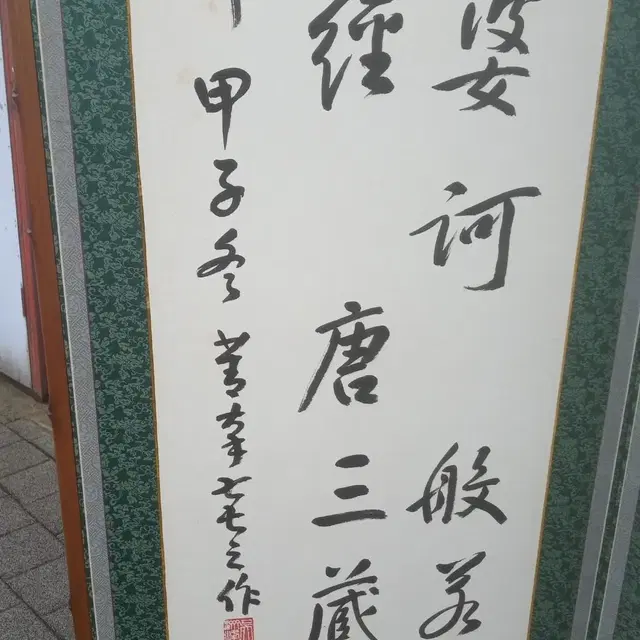 婆訶 般若
經 唐三蔵
甲子冬 菁本七七之作